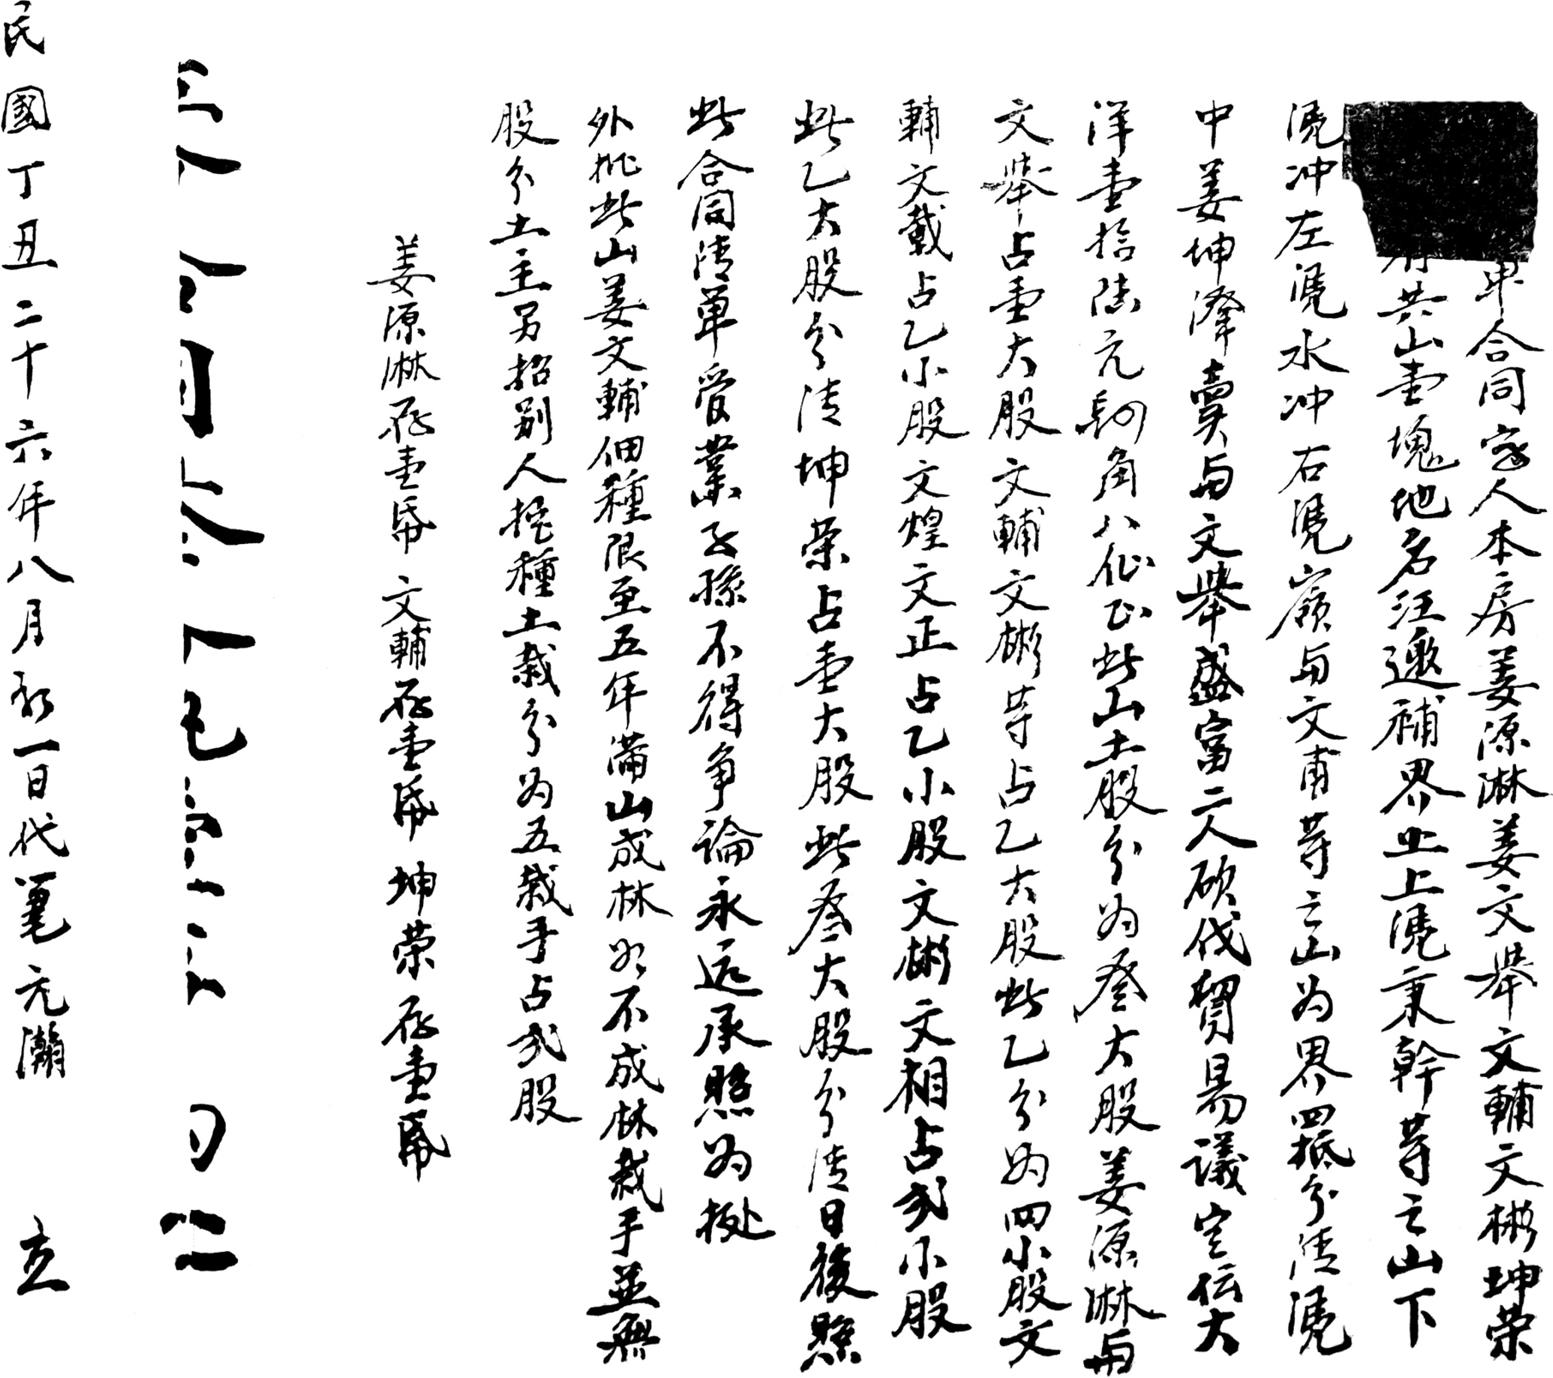 單合同字人本房姜源淋姜文舉文輔文彬坤榮
有共山壹塊地名汪邀補界止上凴秉幹等之山下
凴冲左凴水冲右凴嶺与文甫等之山为界四抵分清凴
中姜坤澤賣与文舉盛富二人砍伐貿易議定伝大
洋壹拾陆元 角八仙正此山土股分为叁大股姜源淋与
文舉占壹大股文輔文彬等占乙大股此乙分为四小股文
輔文載占乙小股文煌文正占乙小股文彬文相占弍小股
此乙大股分清坤榮占壹大股此叁大股分清日後照
此合同清單受業子孫不得争論永远承照为据
外批此山姜文輔佃種限至五年滿山成林如不成林栽手並無
股分土主另招别人挖種土栽分为五栽手占弍股
姜源淋存壹帋 文輔存壹帋 坤榮存壹帋
民國丁丑二十六年八月初一日代筆元瀚 立